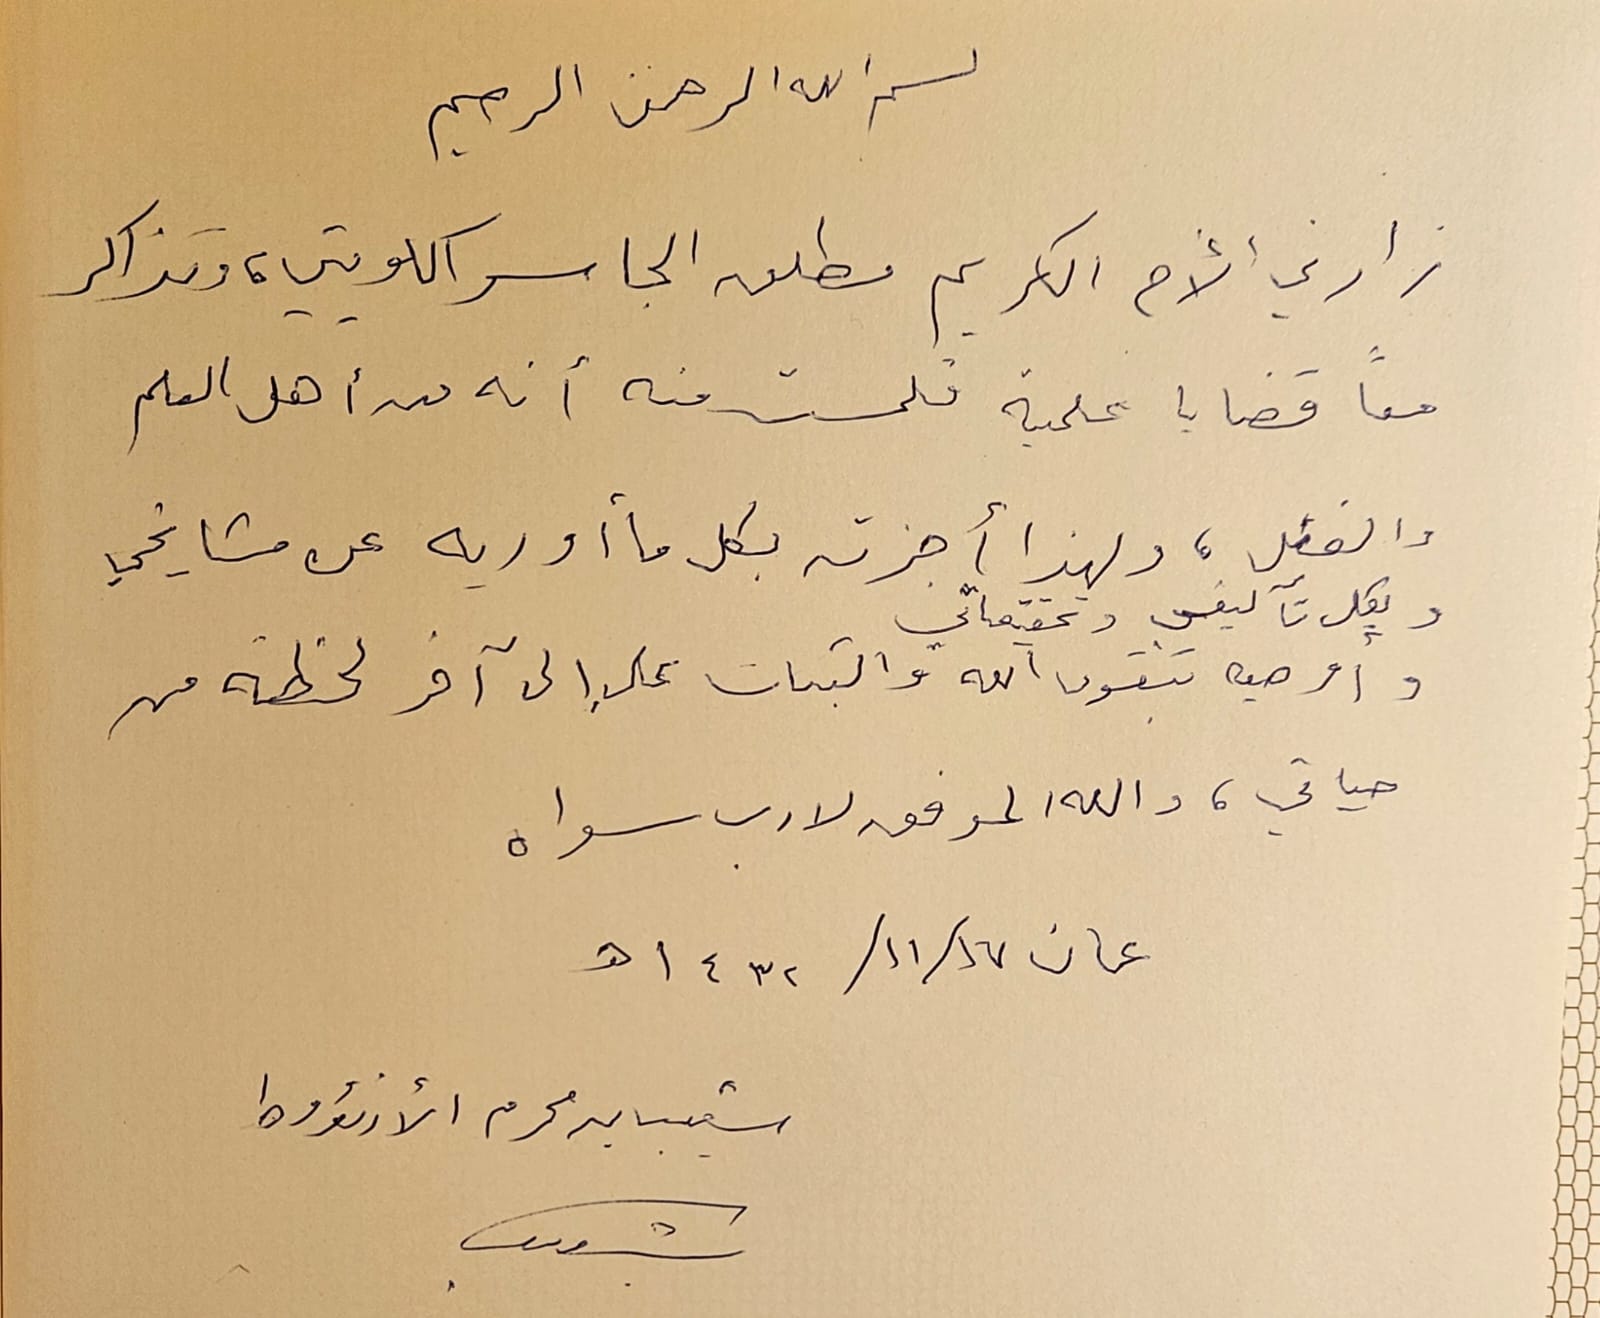 بسم الله الرحمن الرحيم
زارني الأخ الكريم مطلق الجاسر الكويتي، وتذاكر
معاً قضايا علمية فلمست منه أنه من أهل العلم
والفضل، ولهذا أجزته بكل ما أرويه عن مشايخي
وبكل تآليفي وتحقيقاتي
وأوصيه بتقوى الله والثبات على إلى آخر لحظة من
حياتي، والله الموفق لا رب سواه
عمان ١٧/١١/١٤٣٢هـ
شعيب بن محرم الأرنؤوط
شعيب